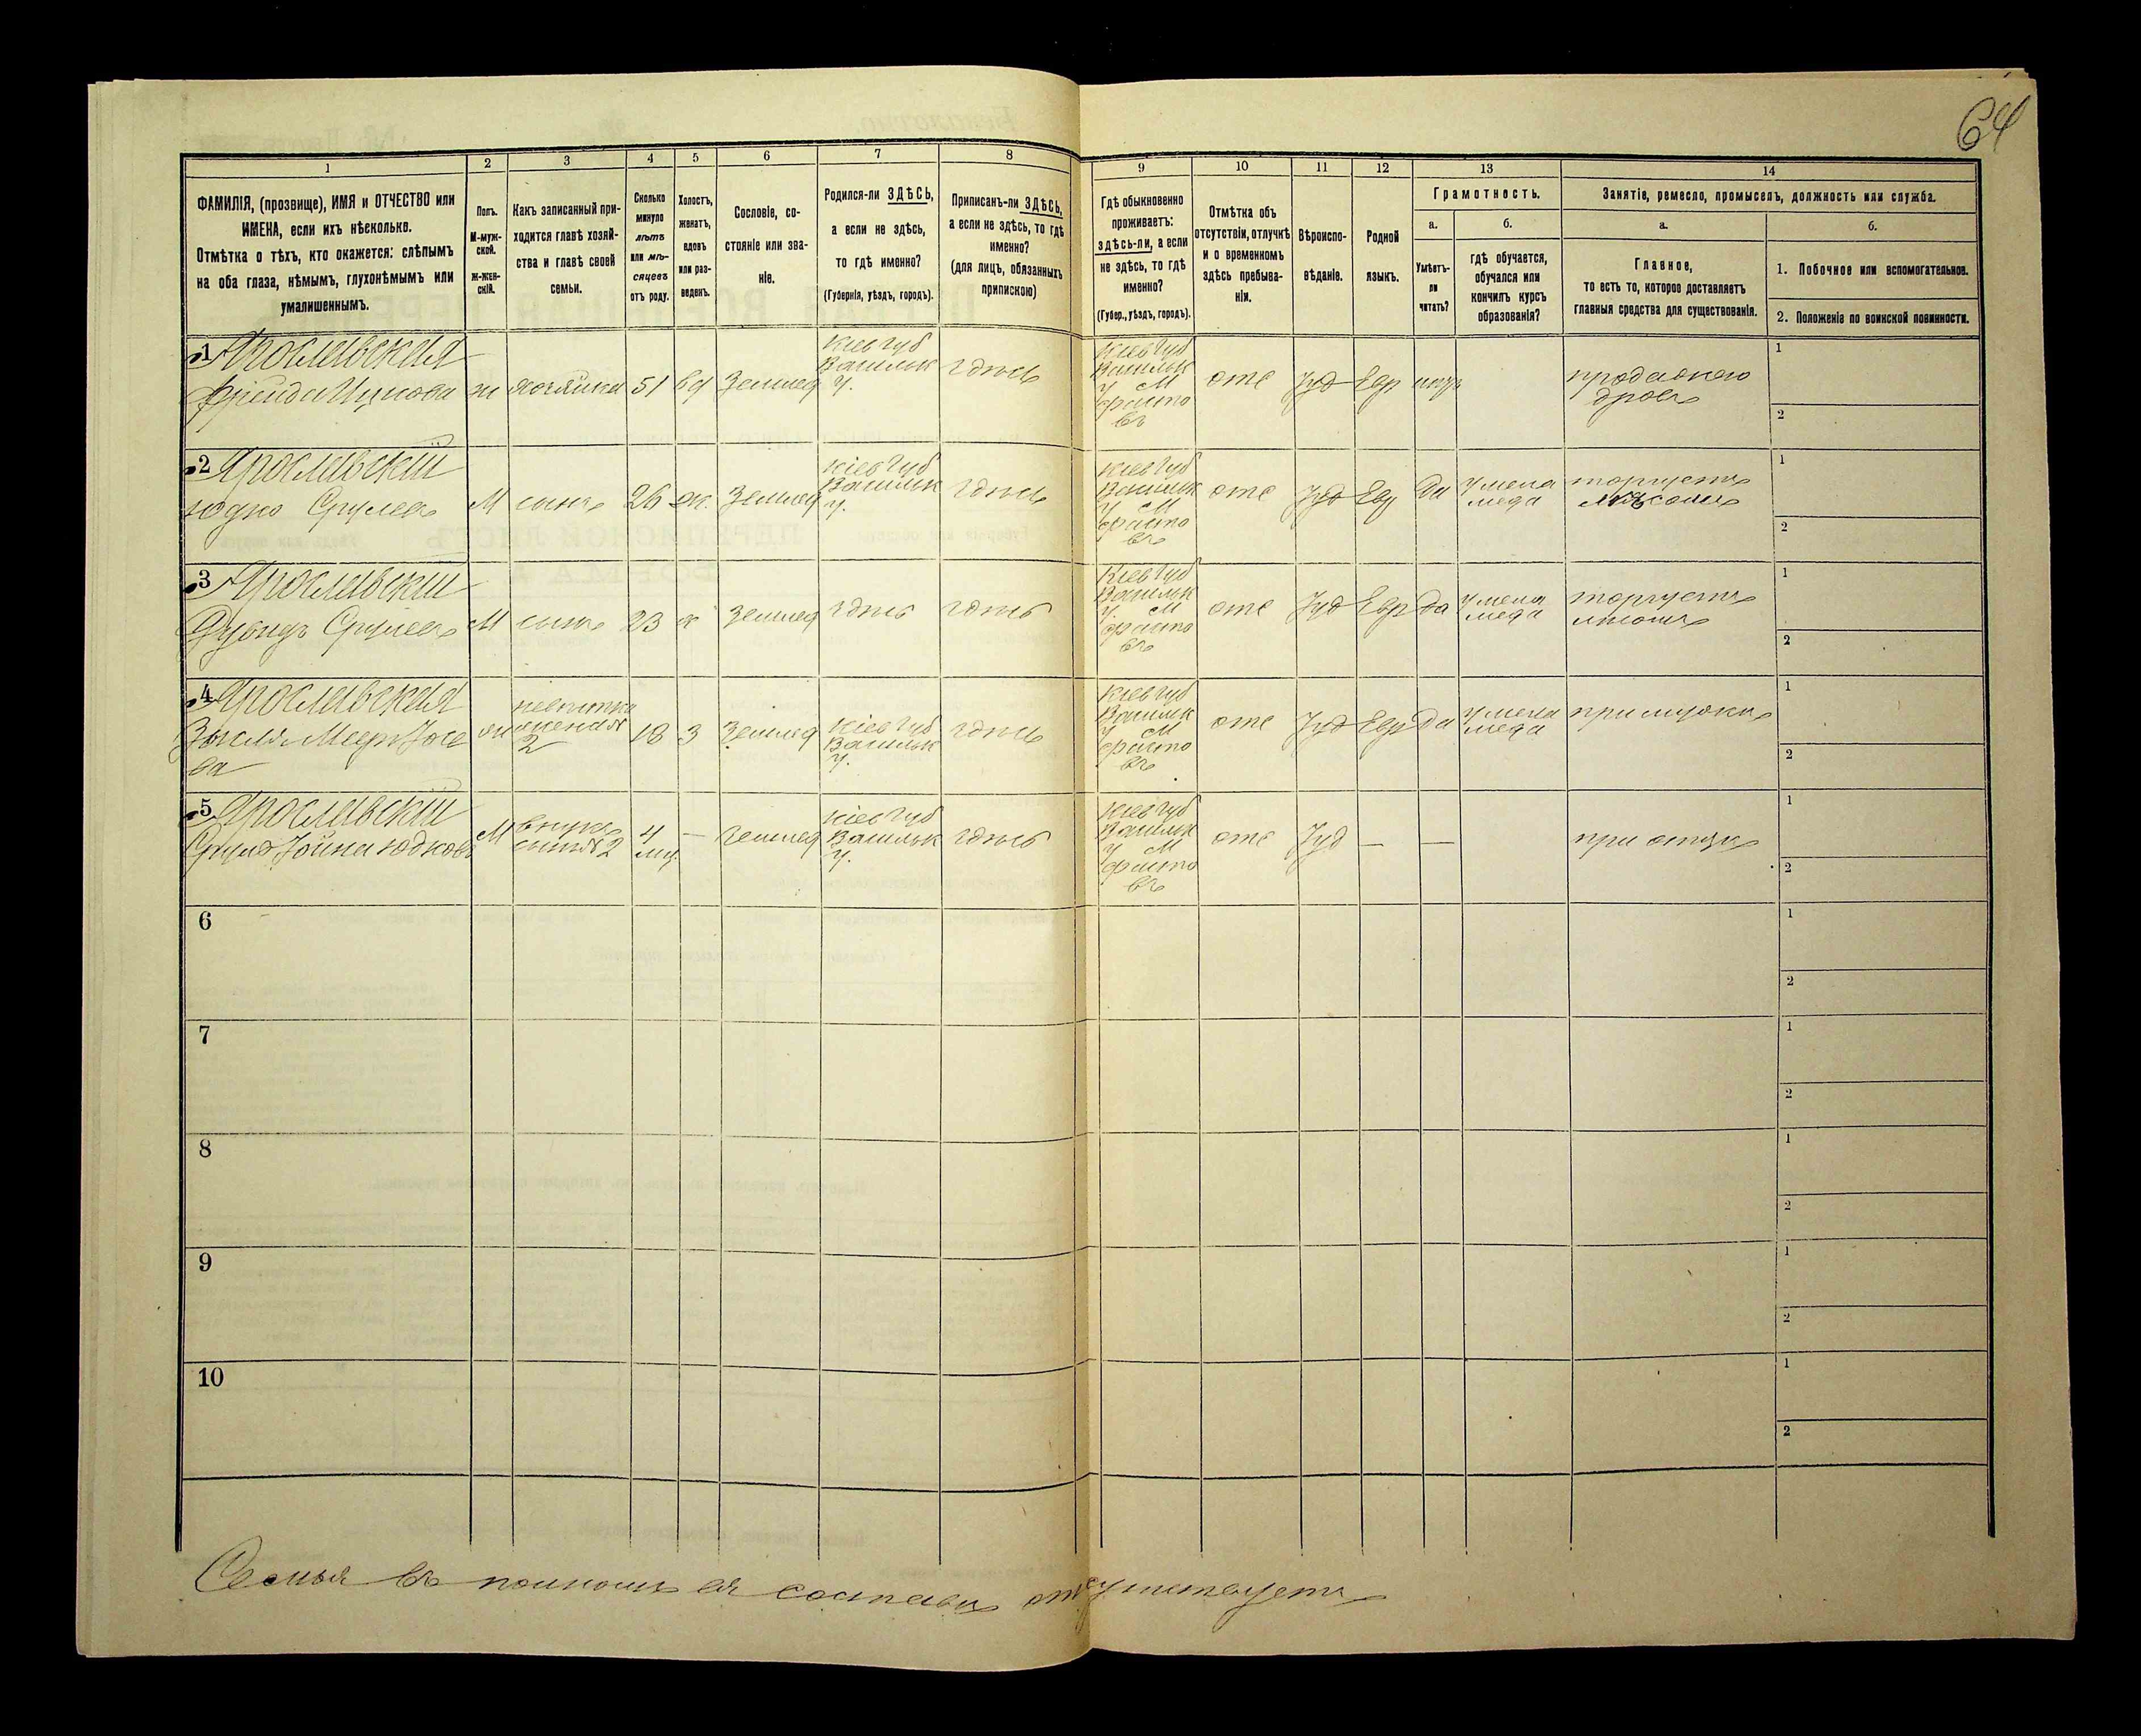 64
1
ФАМИЛІЯ, (прозвище), ИМЯ и ОТЧЕСТВО или
ИМЕНА, если ихъ нѣсколько.
Отмѣтка о тѣхъ, кто окажется: слѣпымъ
на оба глаза, нѣмымъ, глухонѣмымъ или
умалишеннымъ.
2
Полъ.
М-муж-
ской.
Ж-жен-
скій.
3
Какъ записанный при-
ходится главѣ хозяй-
ства и главѣ своей
семьи.
4
Сколько
минуло
лѣтъ
или мѣ-
сяцевъ
отъ роду.
5
Холостъ,
женатъ,
вдовъ
или раз-
веденъ.
6
Сословіе, со-
стояніе или зва-
ніе.
7
Родился-ли ЗДѢСЬ,
а если не здѣсь,
то гдѣ именно?
(Губернія, уѣздъ, городъ).
8
Приписанъ-ли ЗДѢСЬ,
а если не здѣсь, то гдѣ
именно?
(для лицъ, обязанныхъ
припискою)
9
Гдѣ обыкновенно
проживаетъ:
здѣсь-ли, а если
не здѣсь, то гдѣ
именно?
(Губер., уѣздъ, городъ).
10
Отмѣтка объ
отсутствіи, отлучкѣ
и о временномъ
здѣсь пребыва-
ніи.
11
Вѣроиспо-
вѣданіе.
12
Родной
языкъ.
13
Грамотность.
а.
Умѣетъ-
ли
читать?
б.
гдѣ обучается,
обучался или
кончилъ курсъ
образованія?
14
Занятіе, ремесло, промыселъ, должность или служба.
а.
Главное,
то есть то, которое доставляетъ
главныя средства для существованія.
б.
1. Побочное или вспомогательное.
2. Положеніе по воинской повинности.
1
Ярославская
Фрейда Ицкова
ж
хозяйка
51
вд
Землед
Кіев Губ
Васильк
у.
здѣсь
Кіев Губ
Васильк
у М
Фасто
въ
отс
Іуд
Евр
продажею
дровъ
1
2
2
Ярославскій
Юдко Срулевъ
М
сынъ
26
ж.
Землед
Кіев Губ
Васильк
у.
здѣсь
Кіев Губ
Васильк
у М
Фасто
въ
отс
Іуд
Евр
Да
у мела
меда
торгуетъ
лѣсомъ
1
2
3
Ярославскій
Срулевъ
М
сынъ
23
х
Землед
здѣсь
здѣсь
Кіев Губ
Васильк
у. М
Фасто
въ
отс
Іуд
Евр
Да
у мела
меда
торгуетъ
1
2
4
Ярославская
Зысля Меер Іосе
ва
ж
невѣстка
жена №
2
18
З
Землед
Кіев Губ
Васильк
у.
здѣсь
Кіев Губ
Васильк
у М
Фасто
въ
отс
Іуд
Евр
Да
у мела
меда
при мужѣ
1
2
5
Ярославскій
Сруль Іойна Юдковъ
М
внукъ
сын № 2
4
мц.
—
Землед
Кіев Губ
Васильк
у.
здѣсь
Кіев Губ
Васильк
у М
Фасто
въ
отс
Іуд
—
—
при отцѣ
1
2
6
1
2
7
1
2
8
1
2
9
1
2
10
1
2
Семья въ полномъ ея составѣ отсутствуетъ